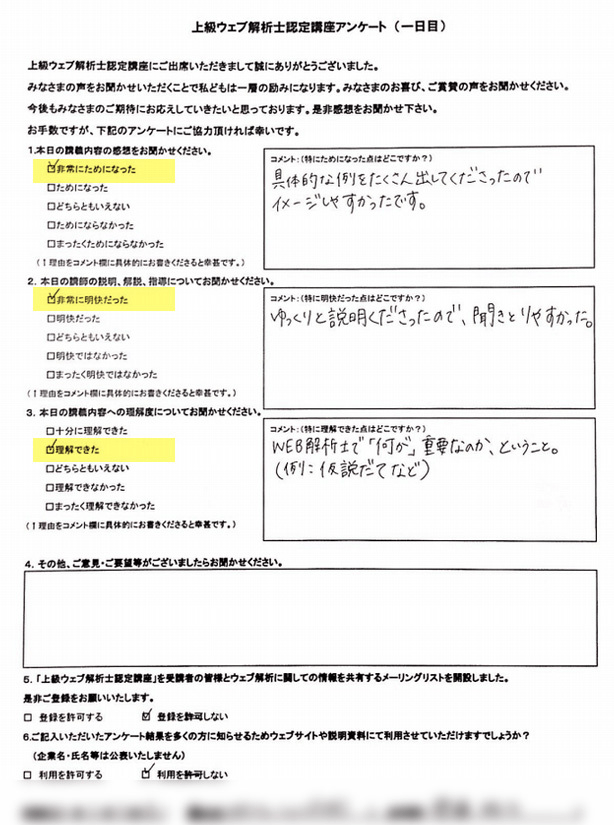 上級ウェブ解析士認定講座アンケート（一日目）
上級ウェブ解析士認定講座にご出席いただきまして誠にありがとうございました。
みなさまの声をお聞かせいただくことで私どもは一層の励みになります。みなさまのお喜び、ご賞賛の声をお聞かせください。
今後もみなさまのご期待にお応えしていきたいと思っております。是非感想をお聞かせ下さい。
お手数ですが、下記のアンケートにご協力頂ければ幸いです。
1.本日の講義内容の感想をお聞かせください。
☑非常にためになった
□ためになった
□どちらともいえない
□ためにならなかった
□まったくためにならなかった
（↑理由をコメント欄に具体的にお書きくださると幸甚です。）
コメント：（特にためになった点はどこですか？）
具体的な例をたくさん出してくださったので
イメージしやすかったです。
2. 本日の講師の説明、解説、指導についてお聞かせください。
☑非常に明快だった
□明快だった
□どちらともいえない
□明快ではなかった
□まったく明快ではなかった
（↑理由をコメント欄に具体的にお書きくださると幸甚です。）
コメント：（特に明快だった点はどこですか？）
ゆっくりと説明くださったので、聞きとりやすかった。
3. 本日の講義内容への理解度についてお聞かせください。
□十分に理解できた
☑理解できた
□どちらともいえない
□理解できなかった
□まったく理解できなかった
（↑理由をコメント欄に具体的にお書きくださると幸甚です。）
コメント：（特に理解できた点はどこですか？）
WEB解析士で「何が」重要なのか、ということ。
（例：仮説だてなど）
4. その他、ご意見・ご要望等がございましたらお聞かせください。
5. 「上級ウェブ解析士認定講座」を受講者の皆様とウェブ解析に関しての情報を共有するメーリングリストを開設しました。
是非ご登録をお願いいたします。
□ 登録を許可する ☑ 登録を許可しない
6.ご記入いただいたアンケート結果を多くの方に知らせるためウェブサイトや説明資料にて利用させていただけますでしょうか？
（企業名・氏名等は公表いたしません）
□ 利用を許可する ☑ 利用を許可しない